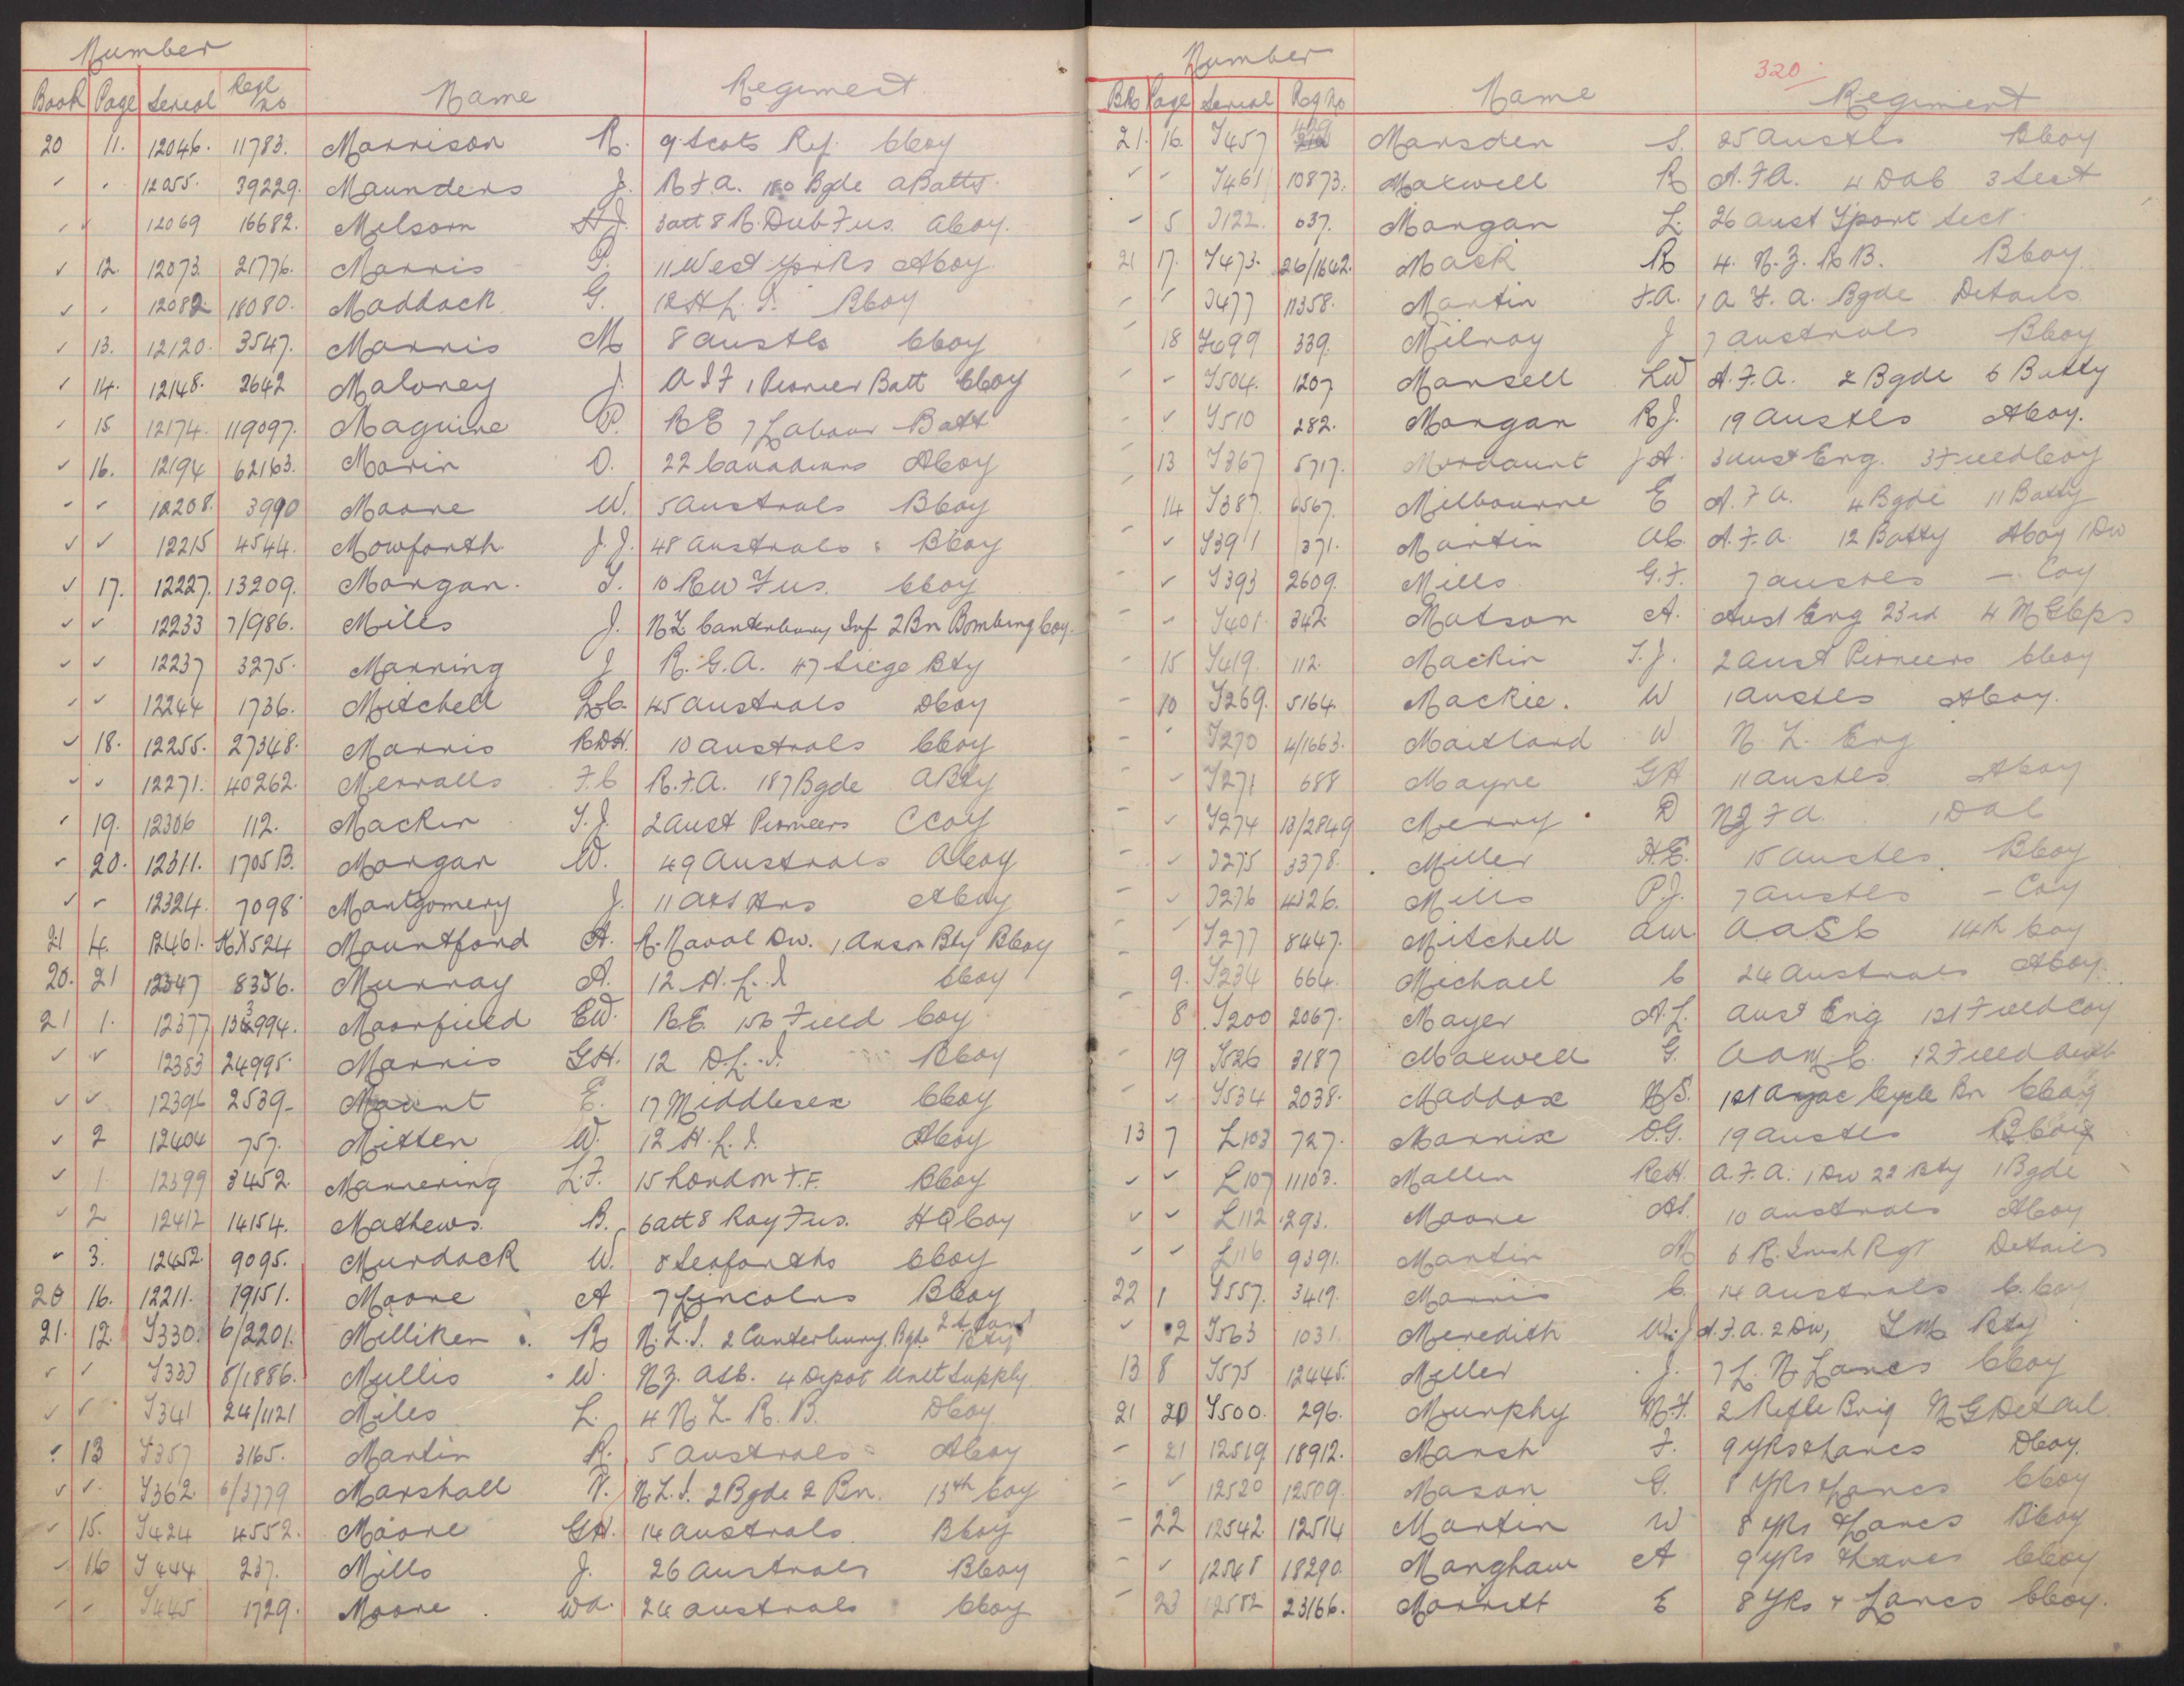 Number
Book Page Serial Regl No Name Regiment
20 11. 12046. 11783. Morrison R. 9 Scots Rif. CCoy
✓ ✓ 12055. 39229. Maunders J. R.F.A. 180 Bgde A Batty.
✓ ✓ 12069 16682. Melsom H J. 3 att 8 R. Dub Fus. A Coy.
✓ 12. 12073. 21776. Morris P. 11 West Yorks A Coy.
✓ ✓ 12082 18080. Maddock G. 12 H.L.I. B Coy
✓ 13. 12120. 3547. Morris M 8 Austls C Coy
✓ 14. 12148. 2642 Maloney J. A I F 1 Pioneer Batt C Coy
✓ 15 12174. 119097. Maguire P. R E 7 Labour Batt
✓ 16. 12194 62163. Morin O. 22 Canadians A Coy
✓ ✓ 12208. 3990 Moore W. 5 Australs B Coy
✓ ✓ 12215 4544. Mowforth J.J. 48 Australs B Coy
✓ 17. 12227. 13209. Morgan. T. 10 R W Fus. C Coy
✓ ✓ 12233 7/986. Miles J. N Z Canterbury Inf 2 Bn Bombing Coy.
✓ ✓ 12237 3275. Manning J R.G.A. 47 Siege Bty
✓ ✓ 12244 1736. Mitchell L.C. 45 Australs D Coy
✓ 18. 12255. 27348. Morris R D H. 10 Australs C Coy
✓ ✓ 12271. 40262. Merralls F.C R.F.A. 187 Bgde A Bty
✓ 19. 12306 112. Mackin T.J. 2 Aust Pioneers C Coy
✓ 20. 12311. 1705 B. Morgan W. 49 Australs A Coy
✓ ✓ 12324. 7098 Montgomery J. 11 A & S Hrs A Coy
21 4. 12461. KX524 Mountford A. R. Naval Div. 1 Anson Bty B Coy
20. 21 12347 8356. Murray A. 12 H.L.I C Coy
21 1. 12377 13 994. Moorfield E W. R E. 156 Field Coy
✓ ✓ 12383 24995. Morris G H. 12 D.L.I. B Coy
✓ ✓ 12396 2539. Mount E. 17 Middlesex C Coy
✓ 2 12404 757. Mitten W. 12 H.L.I. A Coy
✓ 1. 12399 3452. Mannering L.F. 15 London T.F. B Coy
✓ 2 12412 14154. Mathews. B. 6 att 8 Roy Fus. HQ Coy
✓ 3. 12452. 9095. Murdock W. 8 Seaforths C Coy
20 16. 12211. 19151. Moore A 7 Lincolns B Coy
21. 12. T330. 6/2201. Milliken R N.Z.I. 2 Canterbury Rgt.
✓ ✓ T333 8/1886. Mullis W. N.Z. ASC. 4 Depot Unit Supply
✓ ✓ T341 24/1121 Miles L. 4 N Z. R. B. D Coy
✓ 13 T357 3165. Martin R. 5 Australs A Coy
✓ ✓ T362. 6/3779 Marshall N.Z.I. 2 Bgde 2 Bn. 13th Coy
✓ 15. T424 4552. Moore G H. 14 Australs B Coy
✓ 16 T444 237. Mills J. 26 Australs B Coy
✓ ✓ T445 1729. Moore W A. 24 Australs C Coy
Number 320
Bk Page Serial Reg No Name Regiment
21. 16. T457 Marsden S. 25 Austls B Coy
✓ ✓ T461 10873. Maxwell R A.F.A. 4 DAC 3 Sect
- 5 T122. 037. Morgan L. 26 Aust Tport Sect.
21 17. T473. 26/1642. Mack R 4. N.Z. R B. B Coy.
- ✓ T477 11358. Martin F.A. 1 A.F.A. Bgde Details
- 18 T499 339. Milroy J 7 Australs B Coy
- - T504. 1207 Mansell L W A.F.A. 2 Bgde 6 Batty
- ✓ T510 282. Morgan R J. 19 Austls A Coy.
- 13 T367 5717. Mordaunt J A. 3 Aust Eng. 3 Field Coy
- 14 T387. 6567. Milbourne E A.F.A. 4 Bgde 11 Batty
- ✓ T391 371. Martin A.F.A. 12 Batty A Coy 1 Div
- ✓ T393 2609. Mills G.F. 7 Austls - Coy
- - T401. 342. Matson A. Aust Eng 23rd
- 15 T419. 112. Mackin T.J. 2 Aust Pioneers C Coy
- 10 T269. 5164. Mackie. W 1 Austls A Coy.
- ✓ T270 4/1663. Maitland W N. Z. Eng
- ✓ T271 688 Mayne G H 11 Austls A Coy
- ✓ T274 13/2849 Merry D NZ F A. 1 DAC
- ✓ T275 3378. Miller H.E. 15 Austls. B Coy
- ✓ T276 4326. Mills P.J. 7 Austls - Coy
- ✓ T277 8447. Mitchell A W AASC 14th Coy
- 9. T234 664. Michael C 24 Australs A Coy.
- 8 T200 2067. Mayer A.L. Aust Eng 1st Field Coy
- 19 T526 3187 Maxwell G. A A M C. 12 Field Amb
- ✓ T534 2038. Maddox 1st Anzac Cycle Bn C Coy
13 7 L103 727. Marrix O.G. 19 Austls B Coy
✓ ✓ L107 11103. Mallen A.F.A. 1 Div 22 Bty 1 Bgde
✓ ✓ L112 1293. Moore 10 Australs A Coy
✓ ✓ L116 9391. Martin M 6 R. Irish Rgt Details
22 1 T557. 3419. Morris C. 14 Australs C. Coy
✓ 2 T563 1031. Meredith W.J A.F.A. 2 Div, T M Bty
13 8 T575 12445. Miller J. 7 L. N Lancs C Coy
21 20 T500. 296. Murphy M.F. 2 Rifle Brig N G Detail.
- 21 12519 18912. Marsh F. 9 Yks & Lancs D Coy.
- ✓ 12520 12509. Mason G. 8 Yks & Lancs C Coy
- 22 12542 12514 Martin W 8 Yks & Lancs B Coy
- ✓ 12548 18290. Mangham A 9 Yks & Lancs C Coy
- 23 12552 23166. Marriott E 8 Yks & Lancs C Coy.